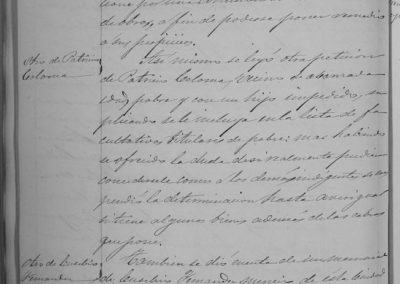 de obras, a fin de poderse poner remedio
a sus perjuicios.
Otro de Patricio
Coloma
Asi mismo se leyó otra peticion
de Patricio Coloma, vecino de abanzada
edad pobre y con un hijo impedido, su
plicando se le incluya en la lista de fa
cultativos titulares de pobre: mas habiendo
se ofrecido la duda de si realmente puede
considerarse como a los demás indigentes se sus
pendió la determinacion hasta averiguar
si tiene algunos bienes además de las cabras
que pone.
Otro de Eusebio
Fernandez
Tambien se dió cuenta de un memorial
de Eusebio Fernandez de esta Ciudad